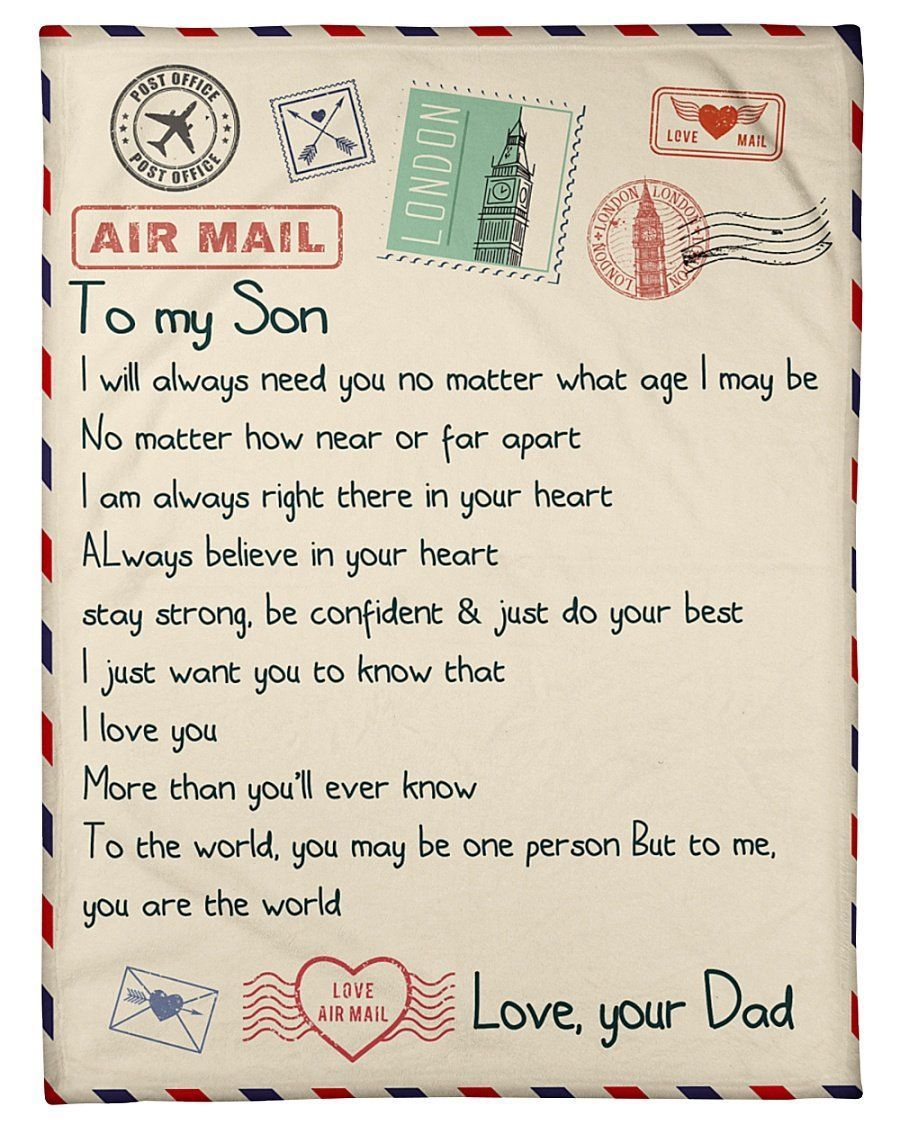 POST OFFICE
POST OFFICE
LONDON
LOVE MAIL
AIR MAIL
LONDON LONDON
LONDON LONDON
To my Son
I will always need you no matter what age I may be
No matter how near or far apart
I am always right there in your heart
ALways believe in your heart
stay strong, be confident & just do your best
I just want you to know that
I love you
More than you'll ever know
To the world, you may be one person But to me,
you are the world
LOVE
AIR MAIL
Love, your Dad